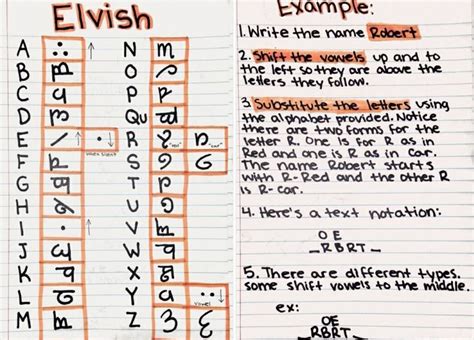 Elvish
A
B
C
D
E
when silent
F
G
H
I
J
K
L
M
N
O
P
Qu
R "red" "car"
S
T
U
V
W
X
Y
vowel
Z
Example:
1. Write the name Robert
2. Shift the vowels up and to
the left so they are above the
letters they follow.
3. Substitute the letters using
the alphabet provided. Notice
there are two forms for the
letter R. One is for R as in
Red and one is R as in Car.
The name Robert starts
with R-Red and the other R
is R-car.
4. Here's a text notation:
OE
_RBRT_
5. There are different types.
some shift vowels to the middle.
ex:
OE
_RBRT_